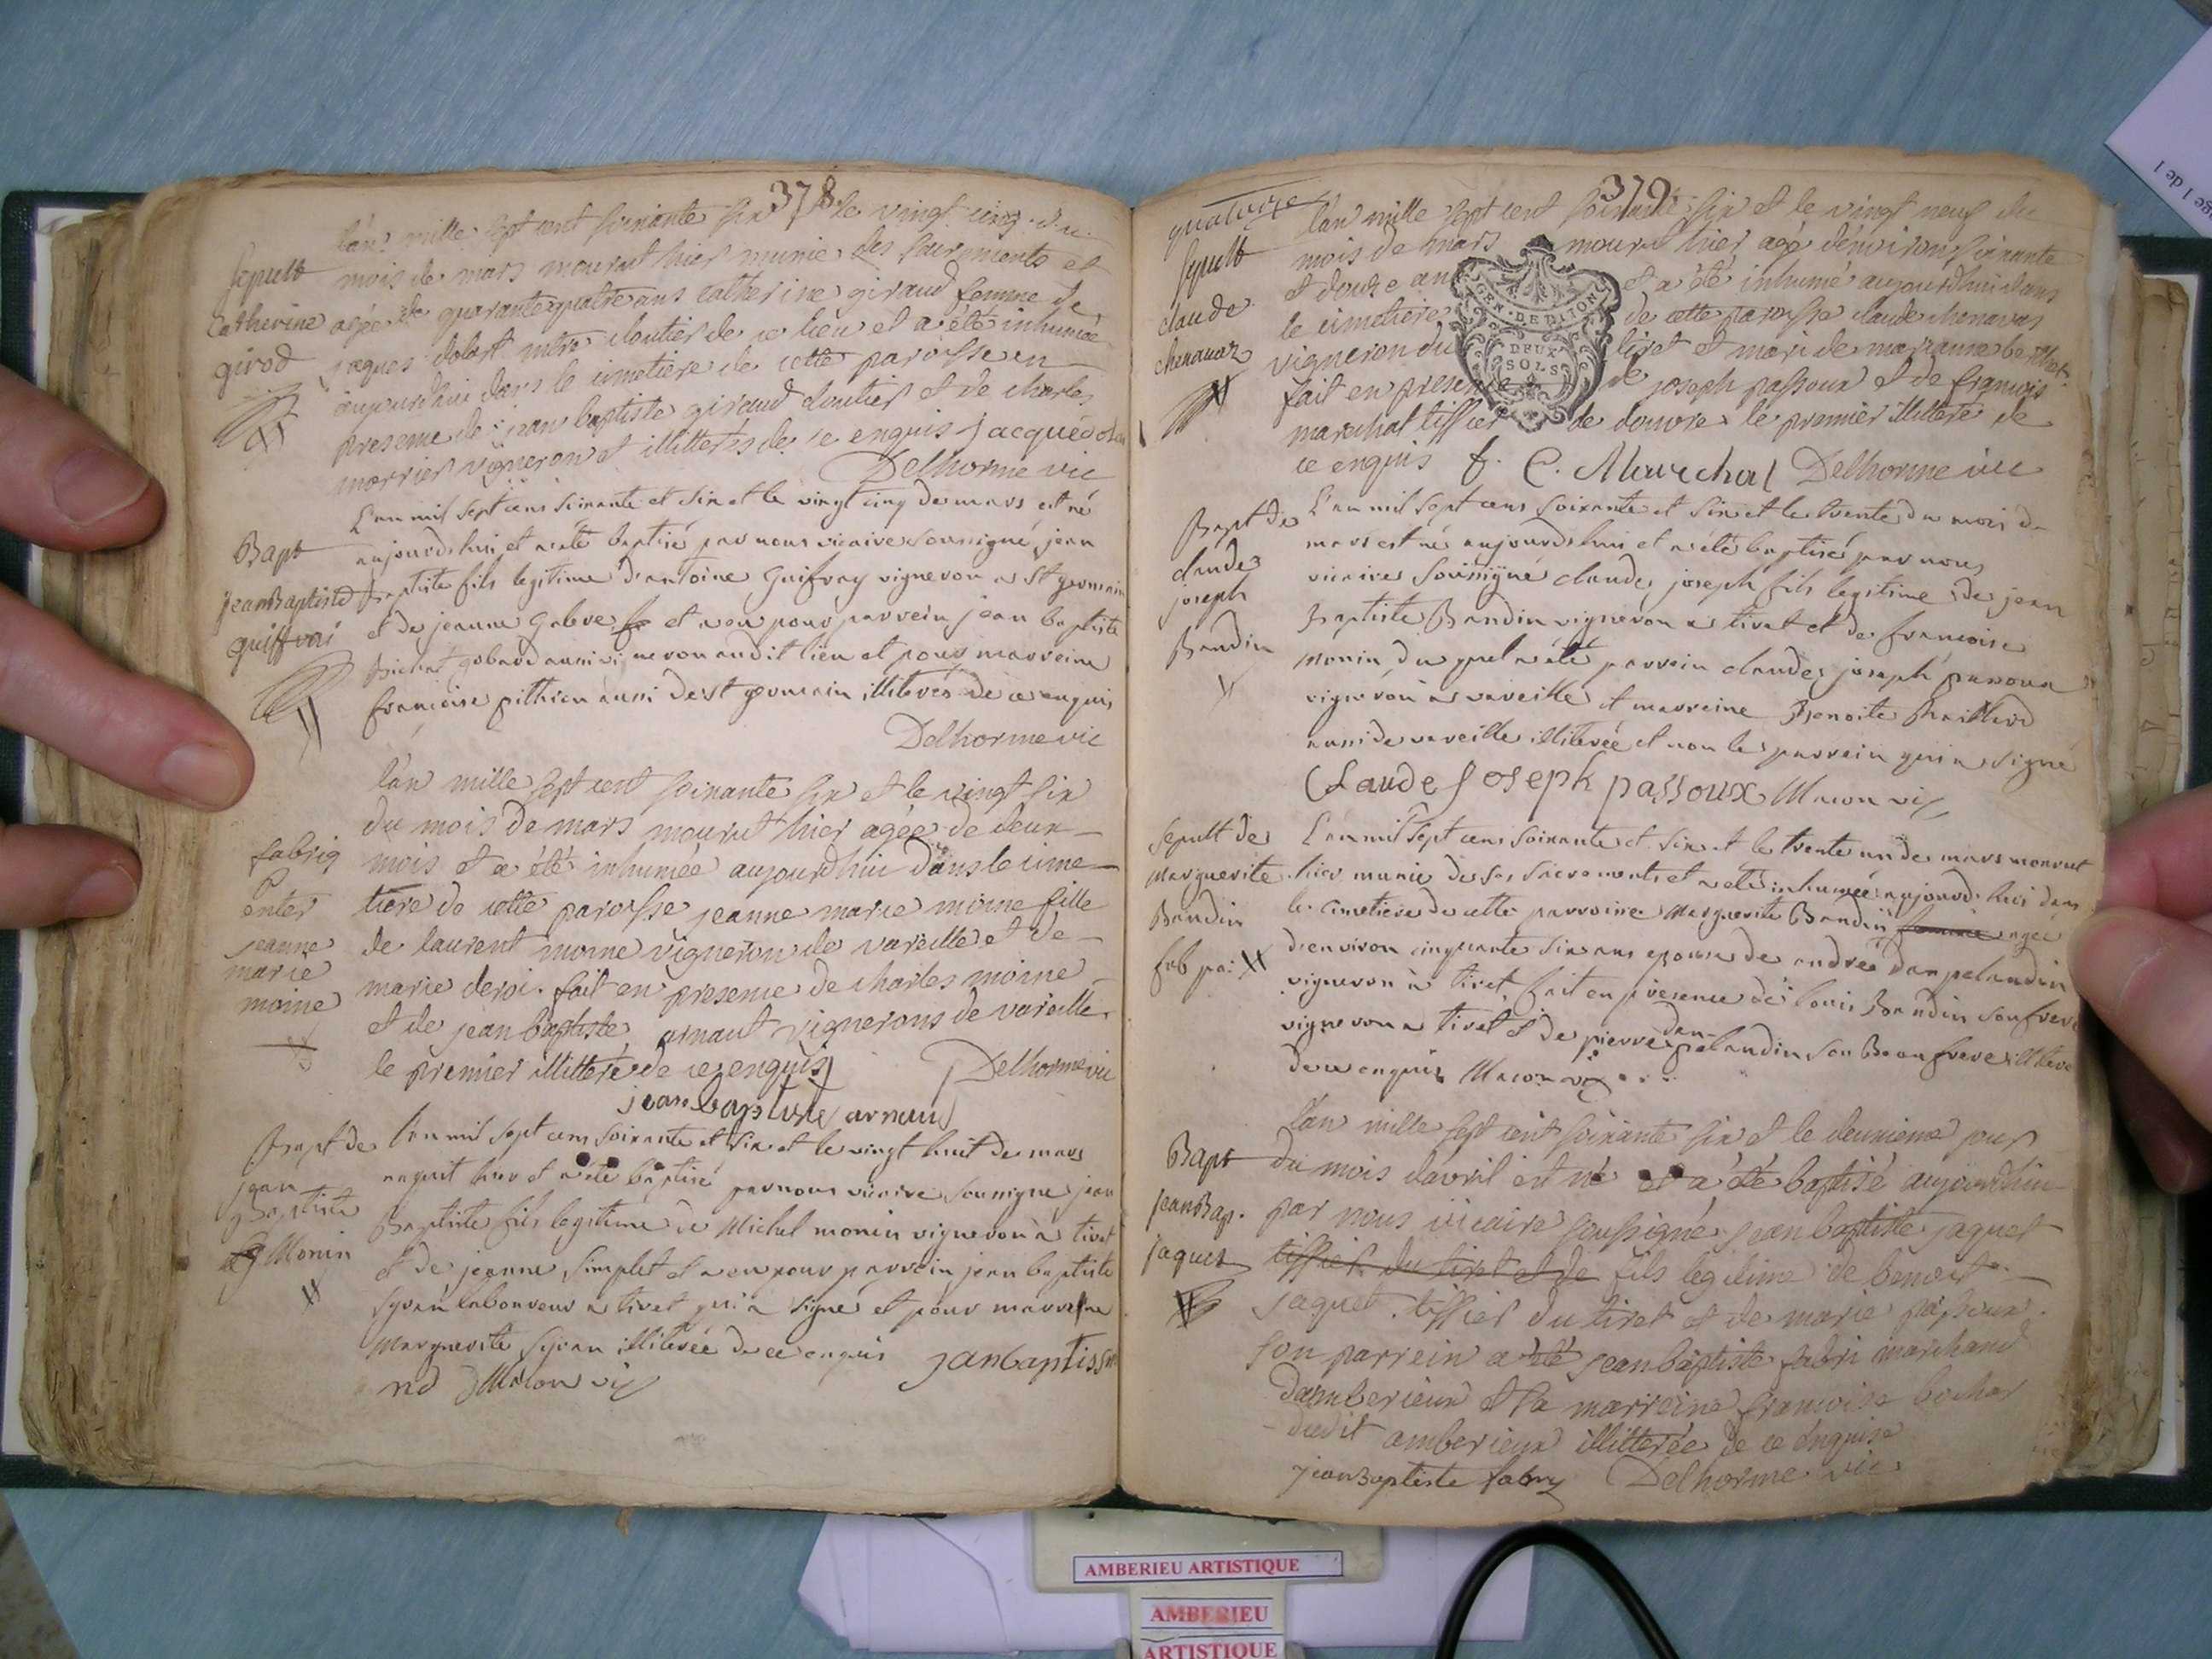 378
l'an mille sept cent soixante six et le vingt cinq du
sepult mois de mars mourut hier munie des sacrements et
Catherine agée de quarante quatre ans catherine giraud femme de
girod jaques dolest mtre cloutier de ce lieu et a été inhumée
aujourd'hui dans le cimetiere de cette paroisse en
presence de jean baptiste giraud cloutier et de charles
morrier vigneron et illitterés de ce enquis jacque dole
Delhorme vic
L'an mil sept cens soixante et six et le vingt cinq de mars est né
Bapt aujourd'hui et a eté baptisé par nous vicaire soussigné jean
jean Baptiste baptiste fils legitime d'antoine Guifray vigneron a St germain
guiffrai et de jeanne et a eu pour parrein jean baptiste
gobard aussi vigneron audit lieu et pour marreine
françoise pithieu aussi de st germain illiterés de ce enquis
Delhorme vic
l'an mille sept cent soixante six et le vingt six
du mois de mars mourut hier agée de deux
fabriq mois et a été inhumée aujourdhui dans le cime
enter tiere de cette paroisse jeanne marie moine fille
jeanne de laurent moine vigneron de vareille et de
marie marie deroi. fait en presence de charles moine
moine et de jean baptiste arnaut vignerons de vareille
le premier illitteré de ce enquis Delhorme vic
jean baptiste arnaud
Bapt de l'an mil sept cens soixante et six et le vingt huit de mars
jean naquit hier et a eté baptisé par nous vicaire soussigné jean
Baptiste Baptiste fils legitime de Michel monin vigneron a tiret
Monin et de jeanne simplet et a eu pour parrein jean baptiste
laboureur a tiret qui a signé et pour marreine
Marguerite illiterée de ce enquis janbaptis
Macon vic
379
quatorze l'an mille sept cent soixante six et le vingt neuf du
sepult mois de mars mourut hier agé d'environ soixante
claude et douze ans et a été inhumé aujourdhui dans
chenavaz le cimetiere de cette paroisse claude chenavas
vigneron du tiret et mari de marianne berthet.
fait en presence de joseph passoux et de francois
marechal tissier de douvre le premier illitteré de
ce enquis f. C. Marechal Delhorme vic
GEN. DE DIJON
DEUX
SOLS
Bapt de L'an mil sept cens soixante et six et le trente du mois de
claude mars est né aujourdhui et a été baptisé par nous
joseph vicaire soussigné claude joseph fils legitime de jean
Baudin Baptiste Baudin vigneron a tiret et de francoise
monin, duquel a été parrein claude joseph passoux
vigneron a vareille et marreine Benoite Baillard
aussi de vareille illiterée et non le parrein qui a signé
Claude Joseph passoux Macon vic
sepult de L'an mil sept cens soixante et six et le trente un de mars mourut
Marguerite hier munie de ses sacrements et a été inhumée aujourd'hui dans
Baudin le cimetiere de cette parroisse Marguerite Baudin femme agée
fab pa: d'environ cinquante six ans epouse de andré dampelandin
vigneron a tiret, fait en presence de louis Baudin son frere
vigneron a tiret et de pierre dampelandin son Beau frere illiteré
de ce enquis Macon vic
l'an mille sept cent soixante six et le deuxieme jour
Bapt du mois d'avril est né et a été baptisé aujourdhui
jean Bap. par nous vicaire soussigné jean baptiste jaquet
jaquet tissier du tiret et de fils legitime de benoit
jaquet tissier du tiret et de marie passoux.
son parrein a été jean baptiste fabri marchand
d'amberieux et sa marreine francoise bochar
dudit amberieux illitterée de ce enquise
jean Baptiste fabry Delhorme vic
ge 1 de 1
AMBERIEU ARTISTIQUE
AMBERIEU
ARTISTIQUE